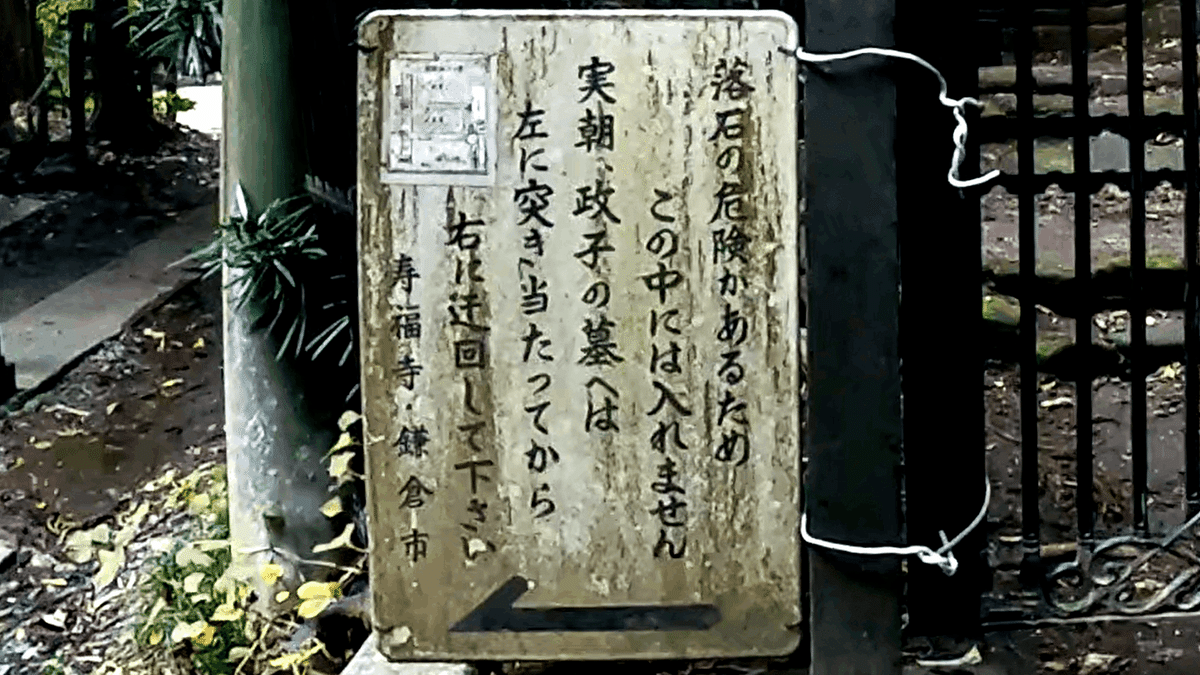 落石の危険があるため
この中には入れません
実朝、政子の墓へは
左に突き当たってから
右に迂回して下さい
寿福寺・鎌倉市